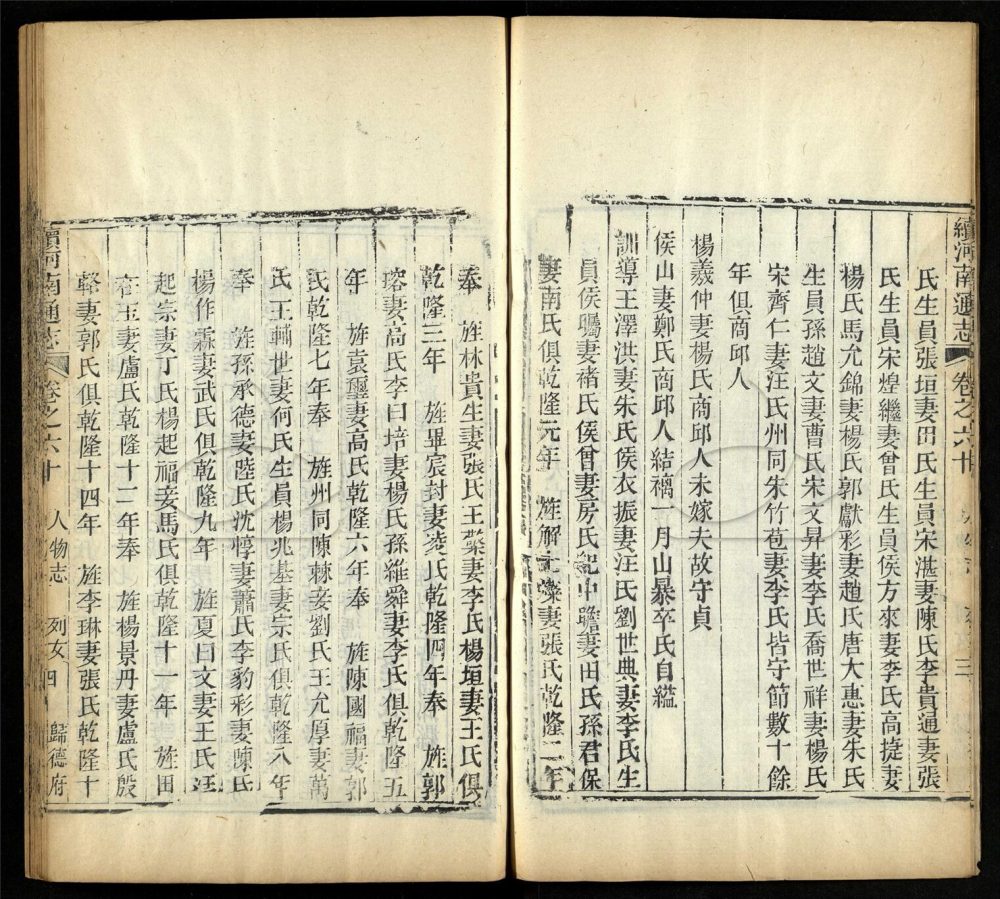 續河南通志 卷之六十 三
氏生員張垣妻田氏生員宋湛妻陳氏李貴通妻張
氏生員宋煌繼妻曾氏生員侯方來妻李氏高捷妻
楊氏馬允錦妻楊氏郭獻彩妻趙氏唐大惠妻朱氏
生員孫趙文妻曹氏宋文昇妻李氏喬世祥妻楊氏
宋齊仁妻汪氏州同朱竹苞妻李氏皆守節數十餘
年俱商邱人
楊羲仲妻楊氏商邱人未嫁夫故守貞
侯山妻鄭氏商邱人結褵一月山暴卒氏自縊
訓導王澤洪妻朱氏侯衣振妻汪氏劉世典妻李氏生
員侯矚妻褚氏侯曾妻房氏紀中瞻妻田氏孫君保
妻南氏俱乾隆元年 旌解元燦妻張氏乾隆二年
奉 旌林貴生妻張氏王葉妻李氏楊垣妻王氏俱
乾隆三年 旌畢宸封妻淩氏乾隆四年奉 旌郭
瑢妻高氏李曰培妻楊氏孫維舜妻李氏俱乾隆五
年 旌袁璽妻高氏乾隆六年奉 旌陳國福妻郭
氏乾隆七年奉 旌州同陳棘妾劉氏王允厚妻萬
氏王輔世妻何氏生員楊兆基妻宗氏俱乾隆八年
奉 旌孫承德妻陸氏沈惇妻蕭氏李豹彩妻陳氏
楊作霖妻武氏俱乾隆九年 旌夏曰文妻王氏汪
起宗妻丁氏楊起福妾馬氏俱乾隆十一年 旌田
玉妻盧氏乾隆十二年奉 旌楊景丹妻盧氏殷
妻郭氏俱乾隆十四年 旌李琳妻張氏乾隆十
續河南通志 卷之六十 人物志 列女 四 歸德府